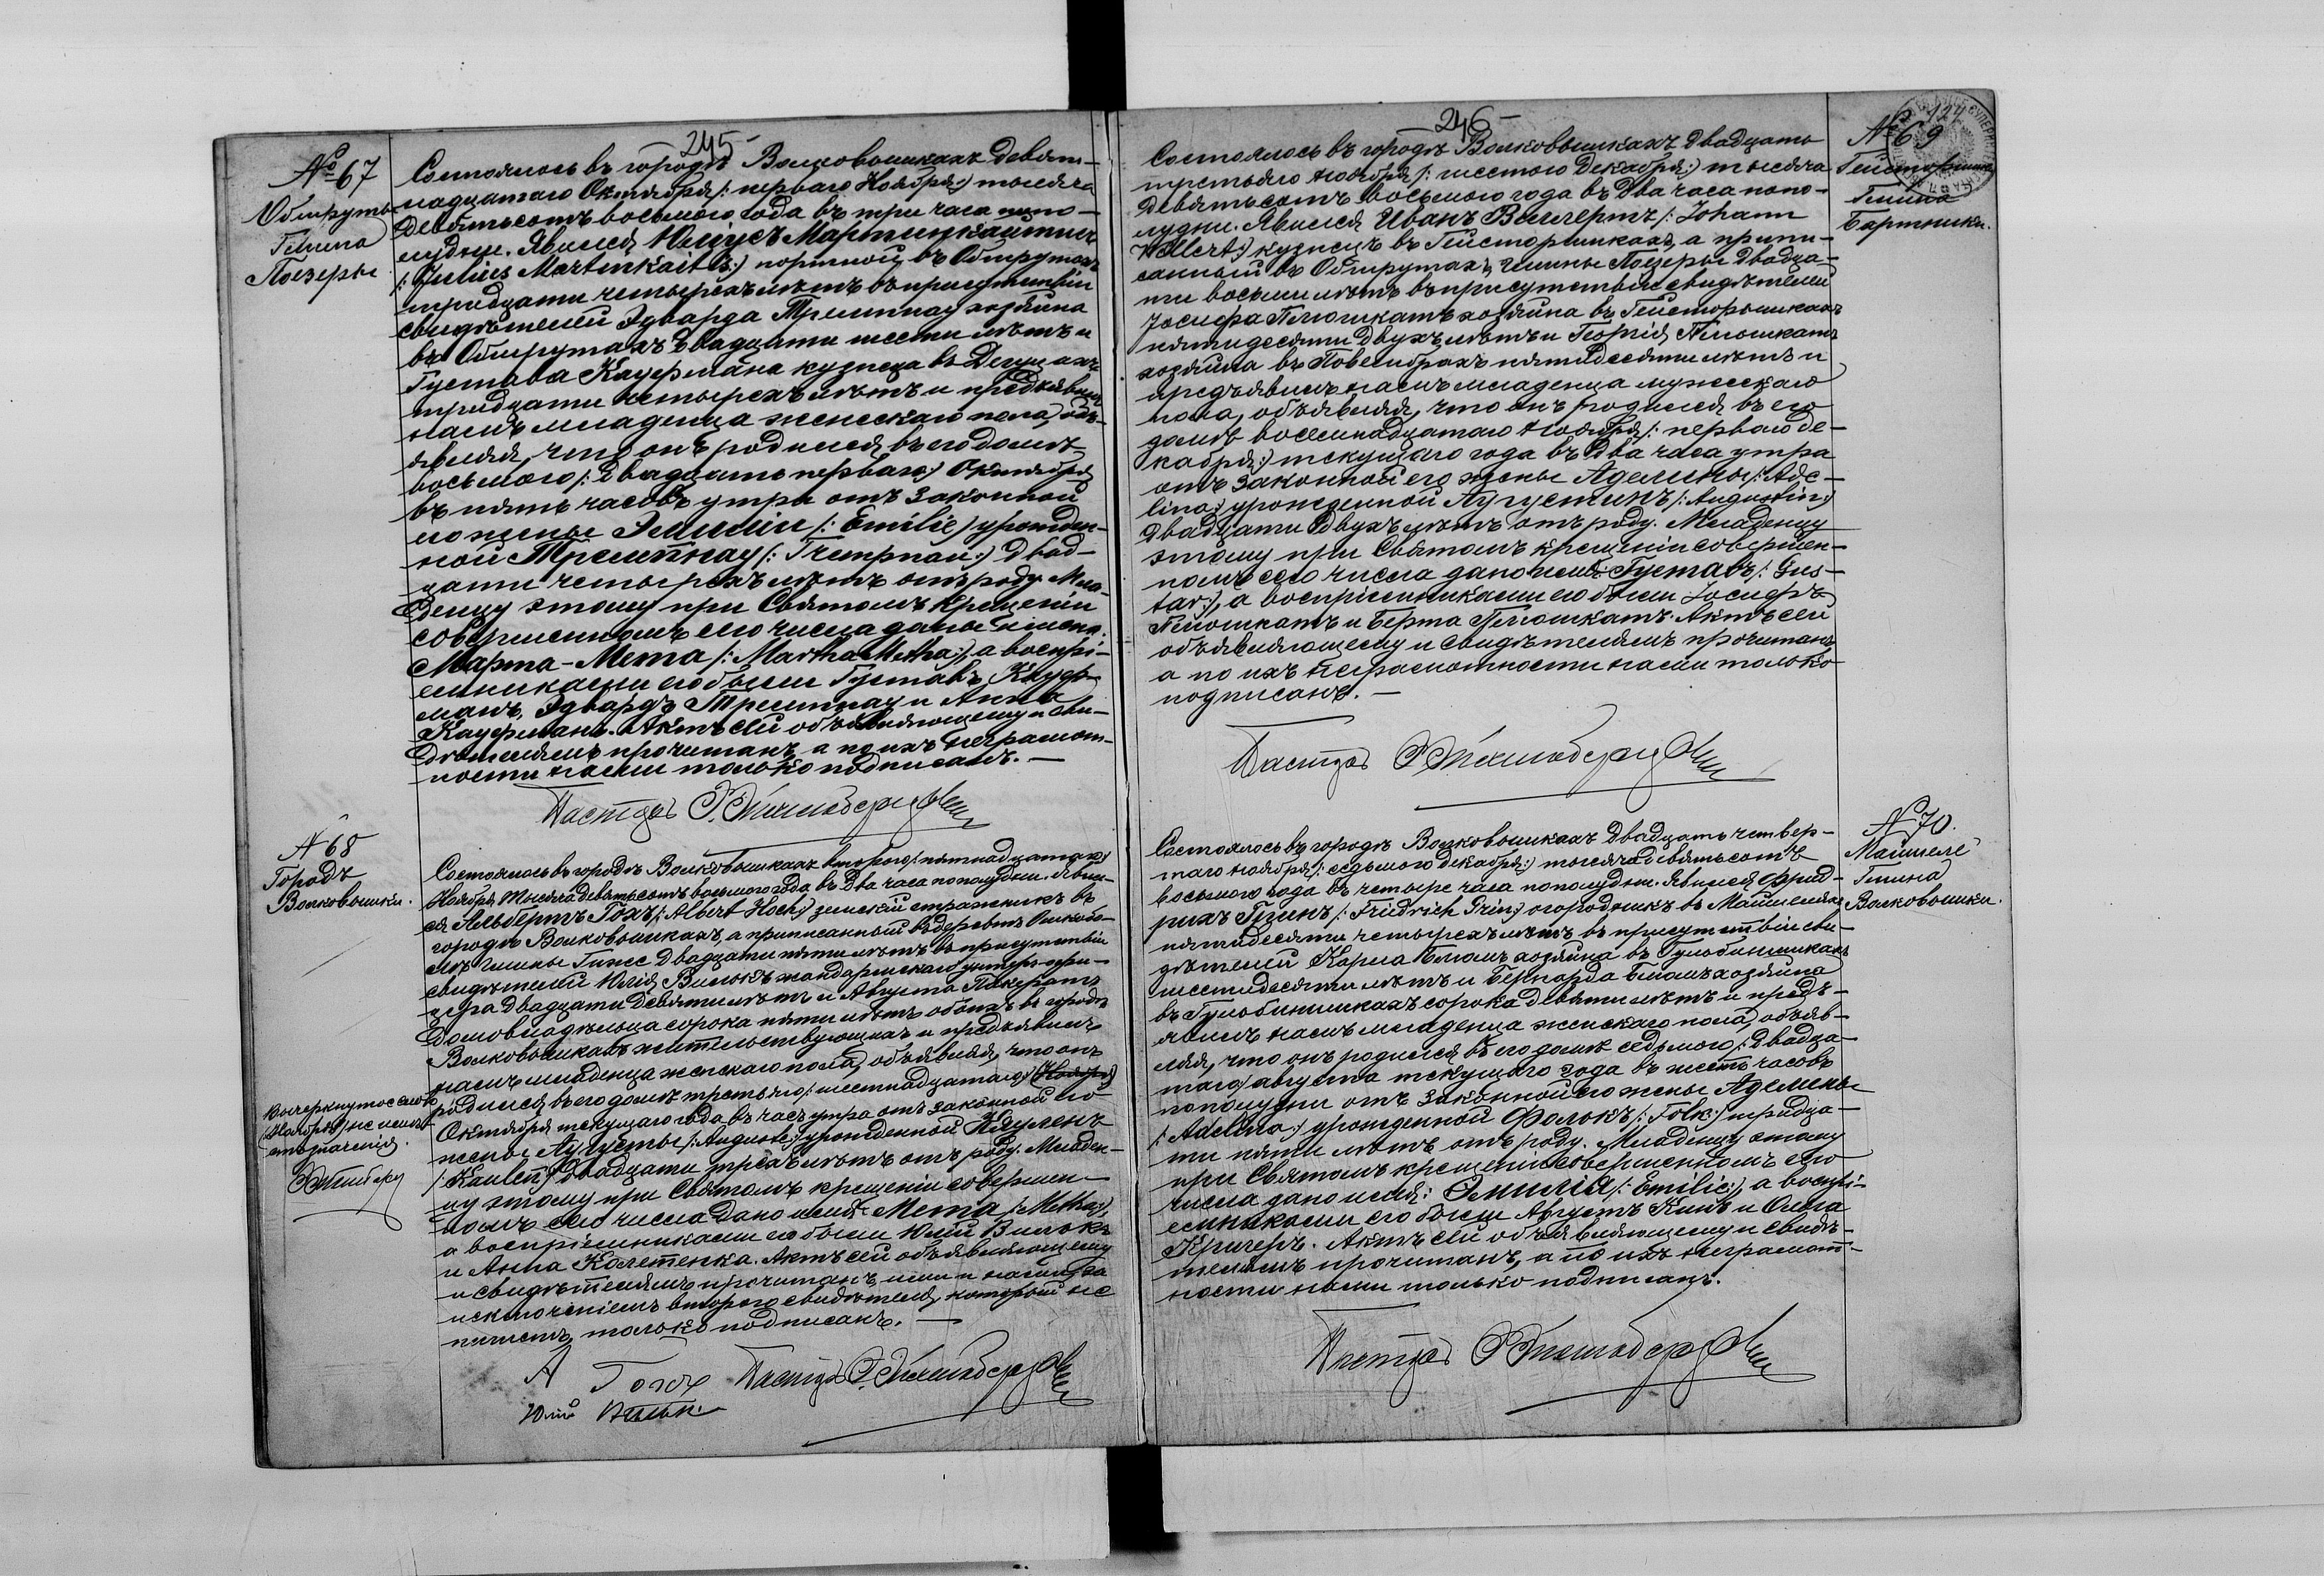 245
№ 67
Обшруты
Гмина
Поезеры
Состоялось въ городѣ Волковышкахъ девят-
надцатаго Октября /: перваго Ноября :/ тысяча
девятьсотъ восьмого года въ три часа попо-
лудни. Явился Юлiусъ Мартинкайтисъ
/: Julius Martinkaitis :/ портной въ Обшрутахъ
тридцати четырехъ лѣтъ въ присутствiи
свидѣтелей Эдварда Тремпнау хозяина
въ Обшрутахъ двадцати шести лѣтъ и
Густава Кауфмана кузнеца въ
тридцати четырехъ лѣтъ и предъявилъ
намъ младенца женскаго пола, объ-
являя, что онъ родился въ его домѣ
восьмого /: двадцать перваго :/ Октября
въ пять часовъ утра отъ законной
его жены Эмилiи /: Emilie :/ урожден-
ной Тремпнау /: Trempnau :/ двад-
цати четырехъ лѣтъ отъ роду. Мла-
денцу этому при Святомъ Крещенiи
совершенномъ сего числа даны имена:
Марта-Мета /: Martha Metha :/, а воспрi-
емниками его были Густавъ Кауф-
манъ, Эдвардъ Тремпнау и Анна
Кауфманъ. Актъ сей объявляющему и сви-
дѣтелямъ прочитанъ, а по ихъ неграмот-
ности нами только подписанъ. —
Пасторъ
№ 68
Городъ
Волковышки.
Состоялось въ городѣ Волковышкахъ второго /: пятнадцатаго :/
Ноября тысяча девятьсотъ восьмого года въ два часа пополудни. Явил-
ся Альбертъ Гохъ /: Albert Hoch :/ земскiй стражникъ въ
городѣ Волковышкахъ, а приписанный въ деревнѣ
гмины двадцати пяти лѣтъ въ присутствiи
свидѣтелей Юлiя Вилькъ жандармскаго унтеръ-офи-
цера двадцати девяти лѣтъ и Августа
домовладѣльца сорока пяти лѣтъ обоихъ въ городѣ
Волковышкахъ жительствующихъ и предъявилъ
намъ младенца женскаго пола, объявляя, что онъ
родился въ его домѣ третьяго /: шестнадцатаго :/ (Ноября)
Октября текущаго года въ часъ утра отъ законной его
жены Августы /: Auguste :/ урожденной Кауленъ
/: Kaulen :/ двадцати трехъ лѣтъ отъ роду. Младен-
цу этому при Святомъ крещенiи совершен-
номъ сего числа дано имя: Мета /: Metha :/,
а воспрiемниками его были Юлiй Вилькъ
и Анна. Актъ сей объявляющему
и свидѣтелямъ прочитанъ, ими и нами, за
исключенiемъ второго свидѣтеля, который не
пишетъ, только подписанъ. —
Вычеркнутое слово
(Ноября) не имѣетъ
значенiя.
А Гохъ Пасторъ
Юлiй Вилькъ.
246
124
№ 69
Гейстаришки
Гмина
Бартники.
Состоялось въ городѣ Волковышкахъ двадцать
третьяго ноября /: шестого Декабря :/ тысяча
девятьсотъ восьмого года въ два часа попо-
лудни. Явился Иванъ Веллертъ /: Johann
Wellert :/ кузнецъ въ Гейсторишкахъ, а припи-
санный въ Обшрутахъ, гмины Поезеры двадца-
ти восьми лѣтъ въ присутствiи свидѣтелей
Iосифа хозяина въ Гейсторишкахъ
пятидесяти двухъ лѣтъ и Георгiя
хозяина въ пятидесяти лѣтъ и
предъявилъ намъ младенца мужескаго
пола, объявляя, что онъ родился въ его
домѣ восемнадцатаго Ноября /: перваго де-
кабря :/ текущаго года въ два часа утра
отъ законной его жены Аделины /: Ade-
lina :/ урожденной Аугустинъ /: Augustin :/
двадцати двухъ лѣтъ отъ роду. Младенцу
этому при Святомъ крещенiи совершен-
номъ сего числа дано имя: Густавъ /: Gus-
tav :/, а воспрiемниками его были Iосифъ
и Берта. Актъ сей
объявляющему и свидѣтелямъ прочитанъ,
а по ихъ неграмотности нами только
подписанъ. —
Пасторъ
№ 70.
Гмина
Волковышки.
Состоялось въ городѣ Волковышкахъ двадцать четвер-
таго ноября /: седьмого декабря :/ тысяча девятьсотъ
восьмого года въ четыре часа пополудни. Явился Фрид-
рихъ Гринъ /: Fridrich Grin :/ огородникъ въ
пятидесяти четырехъ лѣтъ въ присутствiи сви-
дѣтелей Карла Блюмъ хозяина въ Гульбинишкахъ
шестидесяти лѣтъ и Бернарда Блюмъ хозяина
въ Гульбинишкахъ сорока девяти лѣтъ и предъ-
явилъ намъ младенца женскаго пола, объяв-
ляя, что онъ родился въ его домѣ седьмого /: двадца-
таго :/ августа текущаго года въ шесть часовъ
пополудни отъ законной его жены Аделины
/: Adelina :/ урожденной Фолькъ /: Folk :/ тридца-
ти пяти лѣтъ отъ роду. Младенцу этому
при Святомъ крещенiи совершенномъ сего
числа дано имя: Эмилiя /: Emilie :/, а воспрi-
емниками его были Августъ и Ольга
. Актъ сей объявляющему и свидѣ-
телямъ прочитанъ, а по ихъ неграмот-
ности нами только подписанъ.
Пасторъ